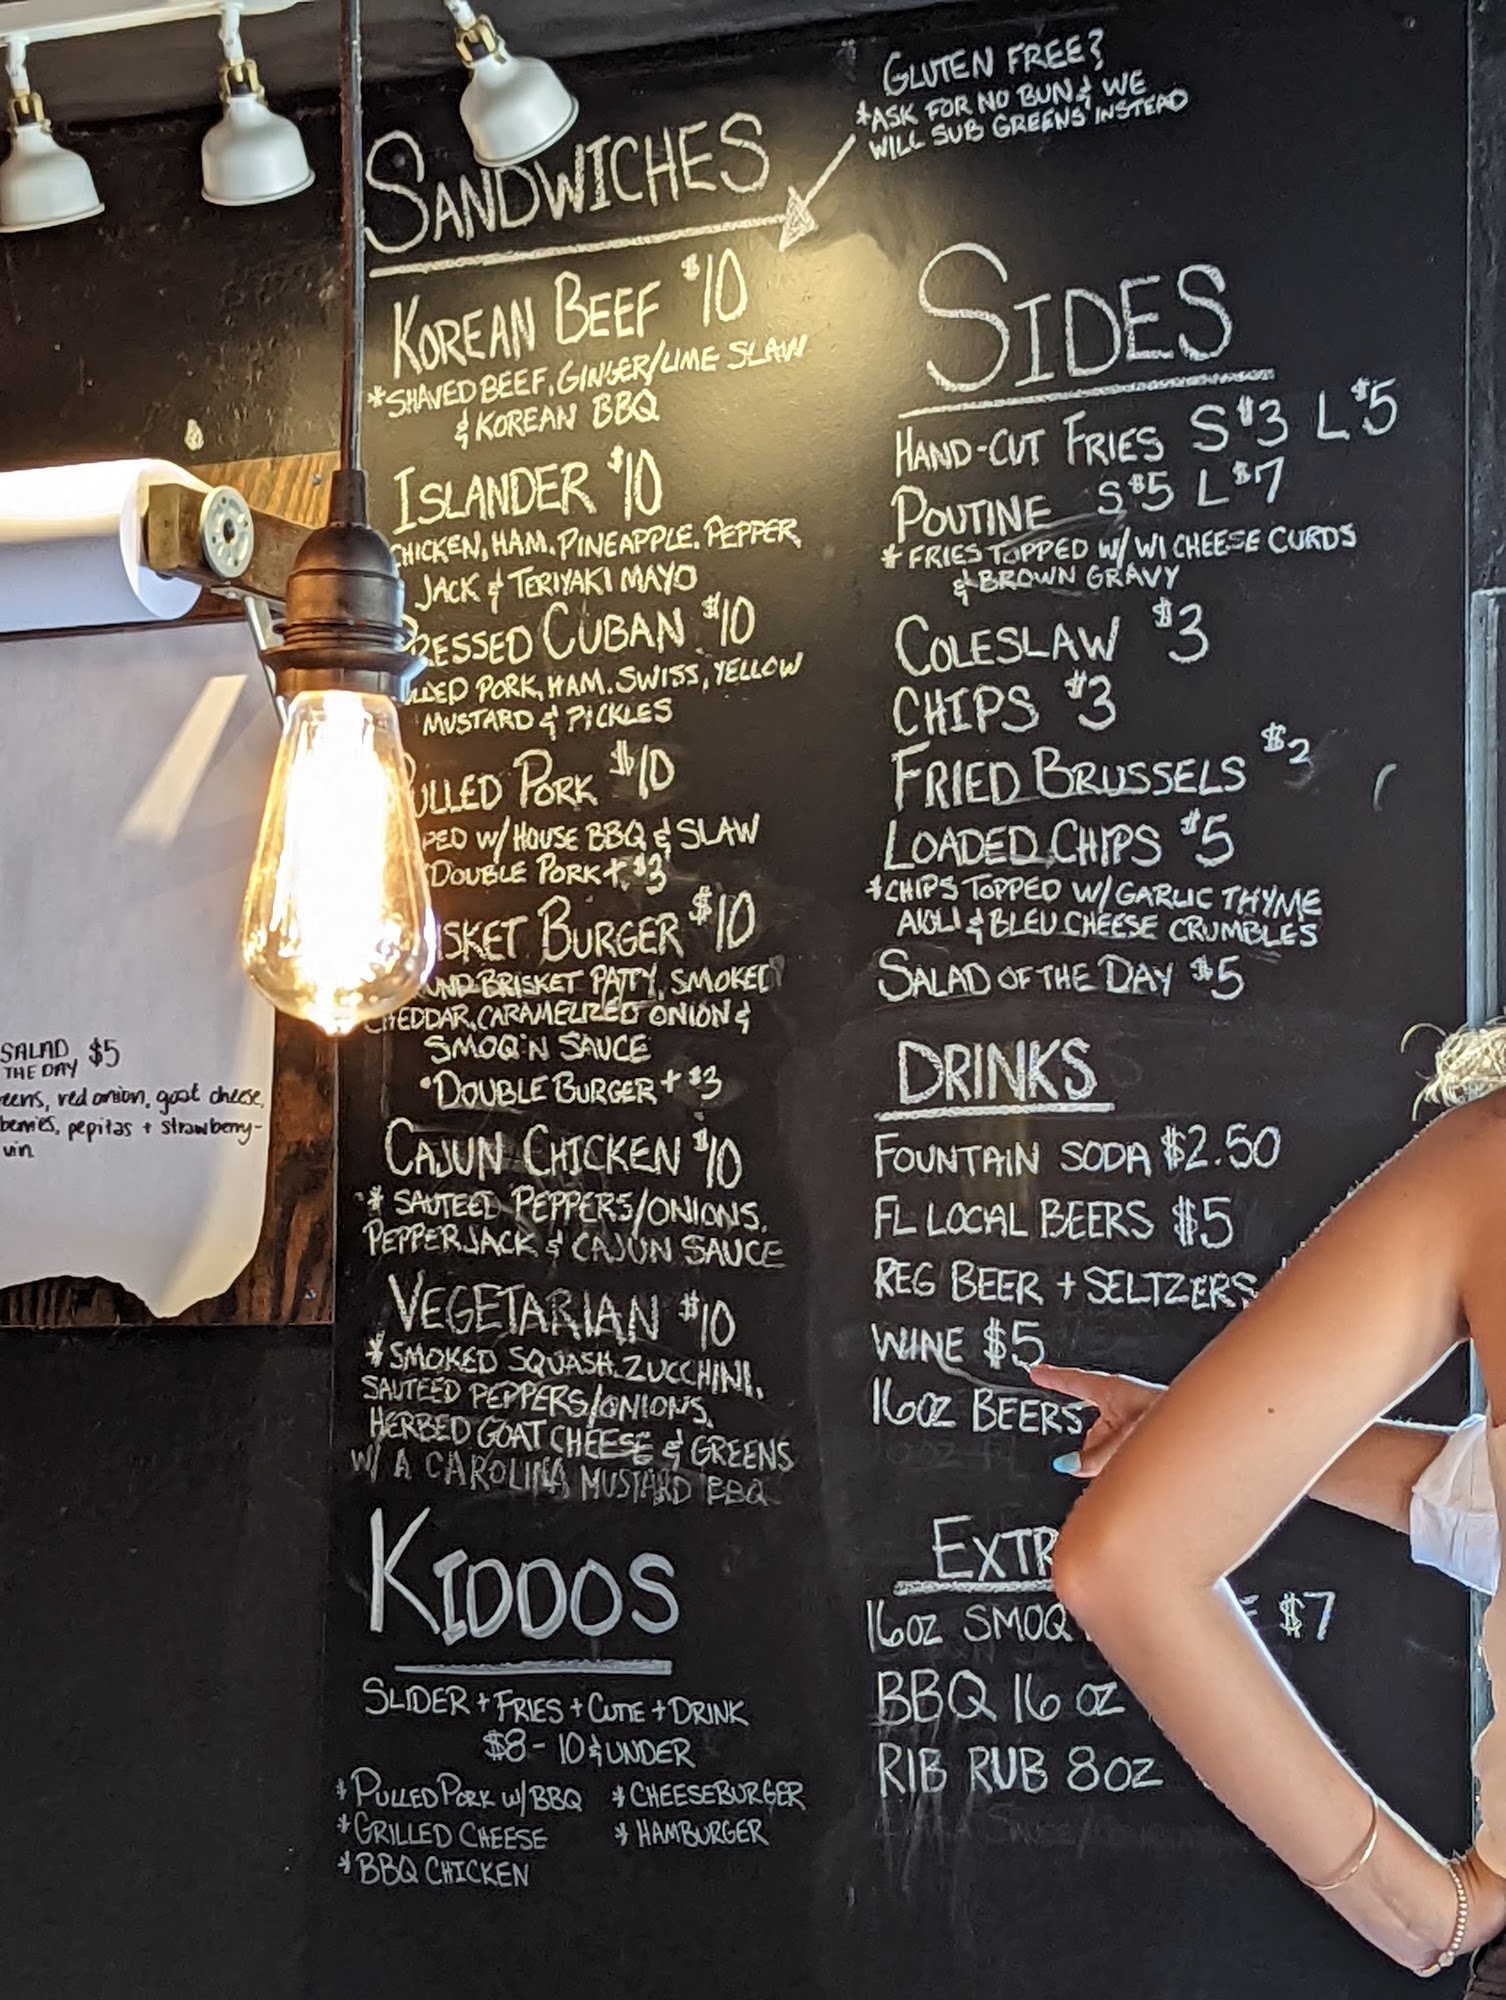 GLUTEN FREE?
*ASK FOR NO BUN & WE
WILL SUB GREENS INSTEAD
SANDWICHES
KOREAN BEEF $10
*SHAVED BEEF, GINGER/LIME SLAW
& KOREAN BBQ
ISLANDER $10
CHICKEN, HAM, PINEAPPLE, PEPPER
JACK & TERIYAKI MAYO
PRESSED CUBAN $10
PORK, HAM, SWISS, YELLOW
MUSTARD & PICKLES
PULLED PORK $10
W/ HOUSE BBQ & SLAW
*DOUBLE PORK + $3
BURGER $10
BRISKET PATTY, SMOKED
CHEDDAR, CARAMELIZED ONION &
SMOQ'N SAUCE
*DOUBLE BURGER + $3
CAJUN CHICKEN $10
* SAUTEED PEPPERS/ONIONS,
PEPPERJACK & CAJUN SAUCE
VEGETARIAN $10
*SMOKED SQUASH, ZUCCHINI,
SAUTEED PEPPERS/ONIONS,
HERBED GOAT CHEESE & GREENS
W/ A CAROLINA MUSTARD BBQ
KIDDOS
SLIDER + FRIES + CUTIE + DRINK
$8 - 10 & UNDER
*PULLED PORK W/ BBQ
*GRILLED CHEESE
*BBQ CHICKEN
*CHEESEBURGER
*HAMBURGER
SIDES
HAND-CUT FRIES S $3 L $5
POUTINE S $5 L $7
*FRIES TOPPED W/ WI CHEESE CURDS
& BROWN GRAVY
COLESLAW $3
CHIPS $3
FRIED BRUSSELS
LOADED CHIPS $5
*CHIPS TOPPED W/ GARLIC THYME
AIOLI & BLEU CHEESE CRUMBLES
SALAD OF THE DAY $5
DRINKS
FOUNTAIN SODA $2.50
FL LOCAL BEERS $5
REG BEER + SELTZERS
WINE $5
16OZ BEERS
EXTR
16OZ SMOQ $7
BBQ 16 OZ
RIB RUB 8OZ
SALAD $5
THE DAY
eens, red onion, goat cheese,
berries, pepitas + strawberry-
vin